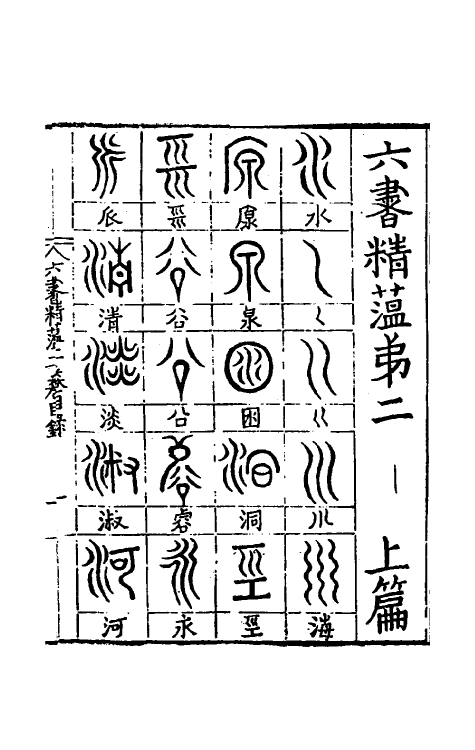 六書精薀弟二 上篇
水
く
巜
川
海
原
泉
洞
巠
谷
㕣
睿
永
𠂢
清
淡
淑
河
六書精薀二卷目錄
一